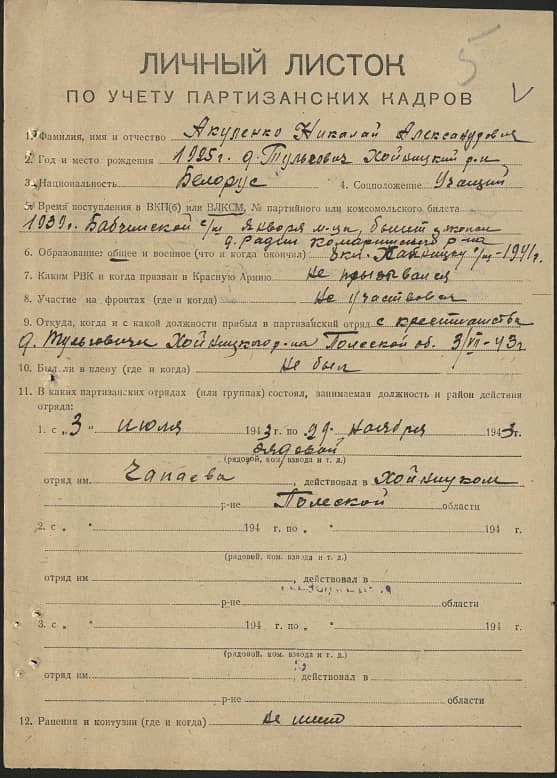 5
V
ЛИЧНЫЙ ЛИСТОК
ПО УЧЕТУ ПАРТИЗАНСКИХ КАДРОВ
1. Фамилия, имя и отчество Акуленко Николай Александрович
2. Год и место рождения 1925 г. д. Тульгович Хойницкий р-н
3. Национальность Белорус 4. Соцположение Учащий
5. Время поступления в ВКП(б) или ВЛКСМ, № партийного или комсомольского билета
1939 г. Бабчинской с/ш Января м-ца, билет
д. Радин Комаринского р-на
6. Образование общее и военное (что и когда окончил) 8 кл. 1941 г.
7. Каким РВК и когда призван в Красную Армию Не призывался
8. Участие на фронтах (где и когда) Не участвовал
9. Откуда, когда и с какой должности прибыл в партизанский отряд с крестьянства
д. Тульговичи Хойницкого р-на Полеской об. 3/VII-43 г
10. Был ли в плену (где и когда) Не был
11. В каких партизанских отрядах (или группах) состоял, занимаемая должность и район действия
отряда:
1. с „3" июля 1943 г. по 29 ноября 1943 г.
рядовой
(рядовой, ком. взвода и т. д.)
отряд им. Чапаева, действовал в Хойницком
р-не Полеской области
2. с „ " 194 г. по „ " 194 г.
(рядовой, ком. взвода и т. д.)
отряд им , действовал в
р-не области
3. с „ " 194 г. по „ " 194 г.
(рядовой, ком. взвода и т. д.)
отряд им. , действовал в
р-не области
12. Ранения и контузии (где и когда) Не имею